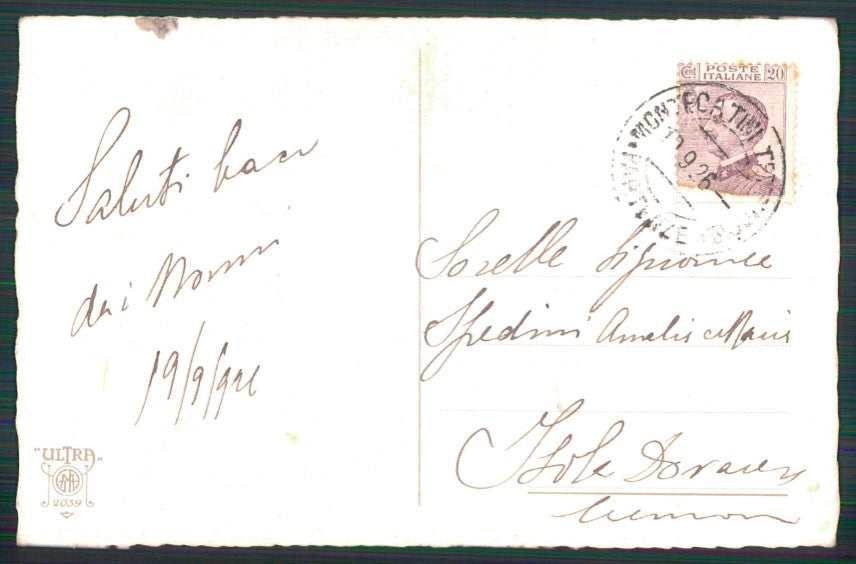 Saluti baci
dai Nonni
19/9/926
"ULTRA"
2039
Cent POSTE 20
ITALIANE
MONTECATINI
19.9.26
PARTENZE
Sorelle Signorine
Spedini Amalia e Maria
Isola Dovarese
Cremona